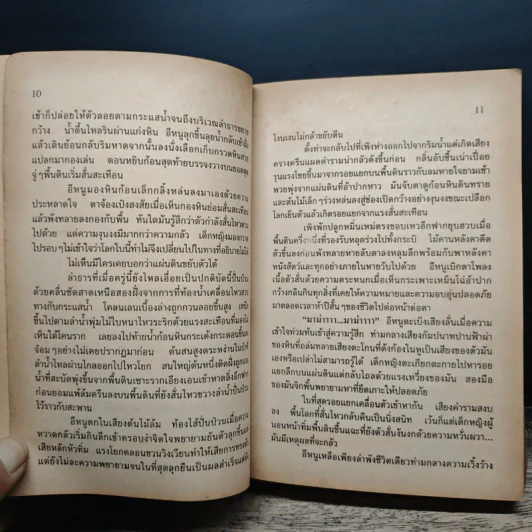 10
เข้าก็ปล่อยให้ตัวลอยตามกระแสน้ำจนถึงบริเวณลำธารขยาย
กว้าง น้ำตื้นไหลรินผ่านแก่งหิน อีหนูลุกขึ้นลุยน้ำกลับเข้าฝั่ง
แล้วเดินย้อนกลับริมหาดจากนั้นลงนั่งเลือกเก็บกรวดหินสวย
แปลกมากองเล่น ตอนหยิบก้อนสุดท้ายบรรจงวางบนยอดสุด
จู่ๆพื้นดินเริ่มสั่นสะเทือน
อีหนูมองหินก้อนเล็กกลิ้งหล่นลงมาเองด้วยความ
ประหลาดใจ ตาจ้องเป๋งสงสัยเมื่อเห็นกองหินย่อมสั่นสะเทือน
แล้วพังทลายลงกองกับพื้น ทันใดมันรู้สึกว่าตัวกำลังสั่นไหวตาม
ไปด้วย แต่ความงุนงงมีมากกว่าความกลัว เด็กหญิงมองกวาด
ไปรอบๆไม่เข้าใจว่าโลกใบนี้ทำไมจึงเปลี่ยนไปในทางที่อธิบายไม่ได้
ไม่เห็นมีใครเคยบอกว่าแผ่นดินขยับตัวได้
ลำธารที่เมื่อครู่นี้ยังไหลเอื่อยเป็นปกติบัดนี้ปั่นป่วน
ด้วยคลื่นซัดสาดเหนือสองฝั่งจากการที่ท้องน้ำเคลื่อนไหวสวน
ทางกับกระแสน้ำ โคลนเลนเบื้องล่างถูกกวนลอยขึ้นสูง เหนือ
ขึ้นไปตามลำน้ำพุ่มไม้ใบหนาไหวระริกด้วยแรงสะเทือนที่มองไม่
เห็นใต้โคนราก เลยลงไปท้ายน้ำก้อนหินกระเด้งกระดอนขึ้นลง
จ๋อมๆอย่างไม่เคยปรากฏมาก่อน ต้นสนสูงตระหง่านในป่าที่
ลำน้ำไหลผ่านไกลออกไปไหวโยก สนใหญ่ต้นหนึ่งยืนตระหง่าน
น้ำที่สะบัดพุ่งขึ้นจากพื้นดินเซาะรากเอียงเอนเข้าหาตลิ่งอีกฟาก
ก่อนยอมแพ้ล้มครืนลงบนพื้นดินที่ยังสั่นไหวขวางลำน้ำปั่นป่วน
ไว้ราวกับสะพาน
อีหนูตกในเสียงต้นไม้ล้ม ท้องไส้ปั่นป่วนเมื่อความ
หวาดกลัวเริ่มกินลึกเข้าครอบงำจิตใจพยายามยันตัวลุกขึ้นยืนแต่
เสียหลักหัวทิ่ม แรงโยกคลอนชวนวิงเวียนทำให้เสียการทรงตัว
แต่ยังไม่ละความพยายามจนในที่สุดลุกยืนเป็นผลสำเร็จแต่ยืน
11
โงนเงนไม่กล้าขยับตีน
ตั้งท่าจะกลับไปที่เพิงห่างออกไปจากริมน้ำแต่เกิดเสียง
ครางครืนแผดคำรามน่ากลัวดังขึ้นก่อน กลิ่นอับชื้นเน่าเปื่อย
รุนแรงโชยขึ้นมาจากรอยแยกบนพื้นดินราวกับลมหายใจยามเช้า
พวยพุ่งจากแผ่นดินที่อ้าปากหาว มันจ้องตาดูก้อนหินดินทราย
และต้นไม้เล็กๆร่วงหล่นลงสู่ช่องเปิดกว้างอย่างงุนงงขณะเปลือก
โลกเย็นตัวแล้วเกิดรอยแยกจากแรงสั่นสะเทือน
เพิงพักปลูกหมิ่นเหม่ตรงขอบเหวอีกฟากยุบฮวบเมื่อ
พื้นดินครึ่งหนึ่งที่รองรับหลุดร่วงไปทั้งกระบิ ไม้คานหลังคาดีด
ตัวขึ้นลงก่อนพังทลายหายลับตาลงหลุมลึกพร้อมกับพาหลังคา
หนังสัตว์และทุกอย่างภายในหายวับไปด้วย อีหนูเบิกตาโพลง
เนื้อตัวสั่นด้วยความตระหนกเมื่อเห็นกระเพาะเหม็นโฉ่อ้าปาก
กว้างกลืนกินทุกสิ่งที่เคยให้ความหมายและความอบอุ่นปลอดภัย
มาตลอดเวลาห้าปีสั้นๆของชีวิตไปต่อหน้าต่อตา
“มาม่าาาา...มาม่าาาา” อีหนูตะเบ็งเสียงลั่นเมื่อความ
เข้าใจท่วมท้นเข้าสู่ความรู้สึก ท่ามกลางเสียงกัมปนาทปานฟ้าผ่า
ของหินที่ถล่มทลายเสียงตะโกนที่ดังก้องในหูเป็นเสียงของตัวมัน
เองหรือเปล่าไม่สามารถรู้ได้ เด็กหญิงตะเกียกตะกายไปหารอย
แยกลึกบนแผ่นดินแต่กลับไถลด้วยแรงเหวี่ยงของมัน สองมือ
ของมันจิกพื้นพยายามหาที่ยึดเกาะให้ปลอดภัย
ในที่สุดรอยแยกเคลื่อนตัวเข้าหากัน เสียงคำรามสงบ
ลง พื้นโลกที่สั่นไหวกลับคืนเป็นนิ่งสนิท เว้นก็แต่เด็กหญิงผู้
นอนหน้าทิ่มพื้นดินชื้นแฉะที่ยังตัวสั่นงันงกด้วยความหวั่นผวา...
มันมีเหตุผลที่จะกลัว
อีหนูเหลือเพียงลำพังชีวิตเดียวท่ามกลางความเวิ้งว้าง